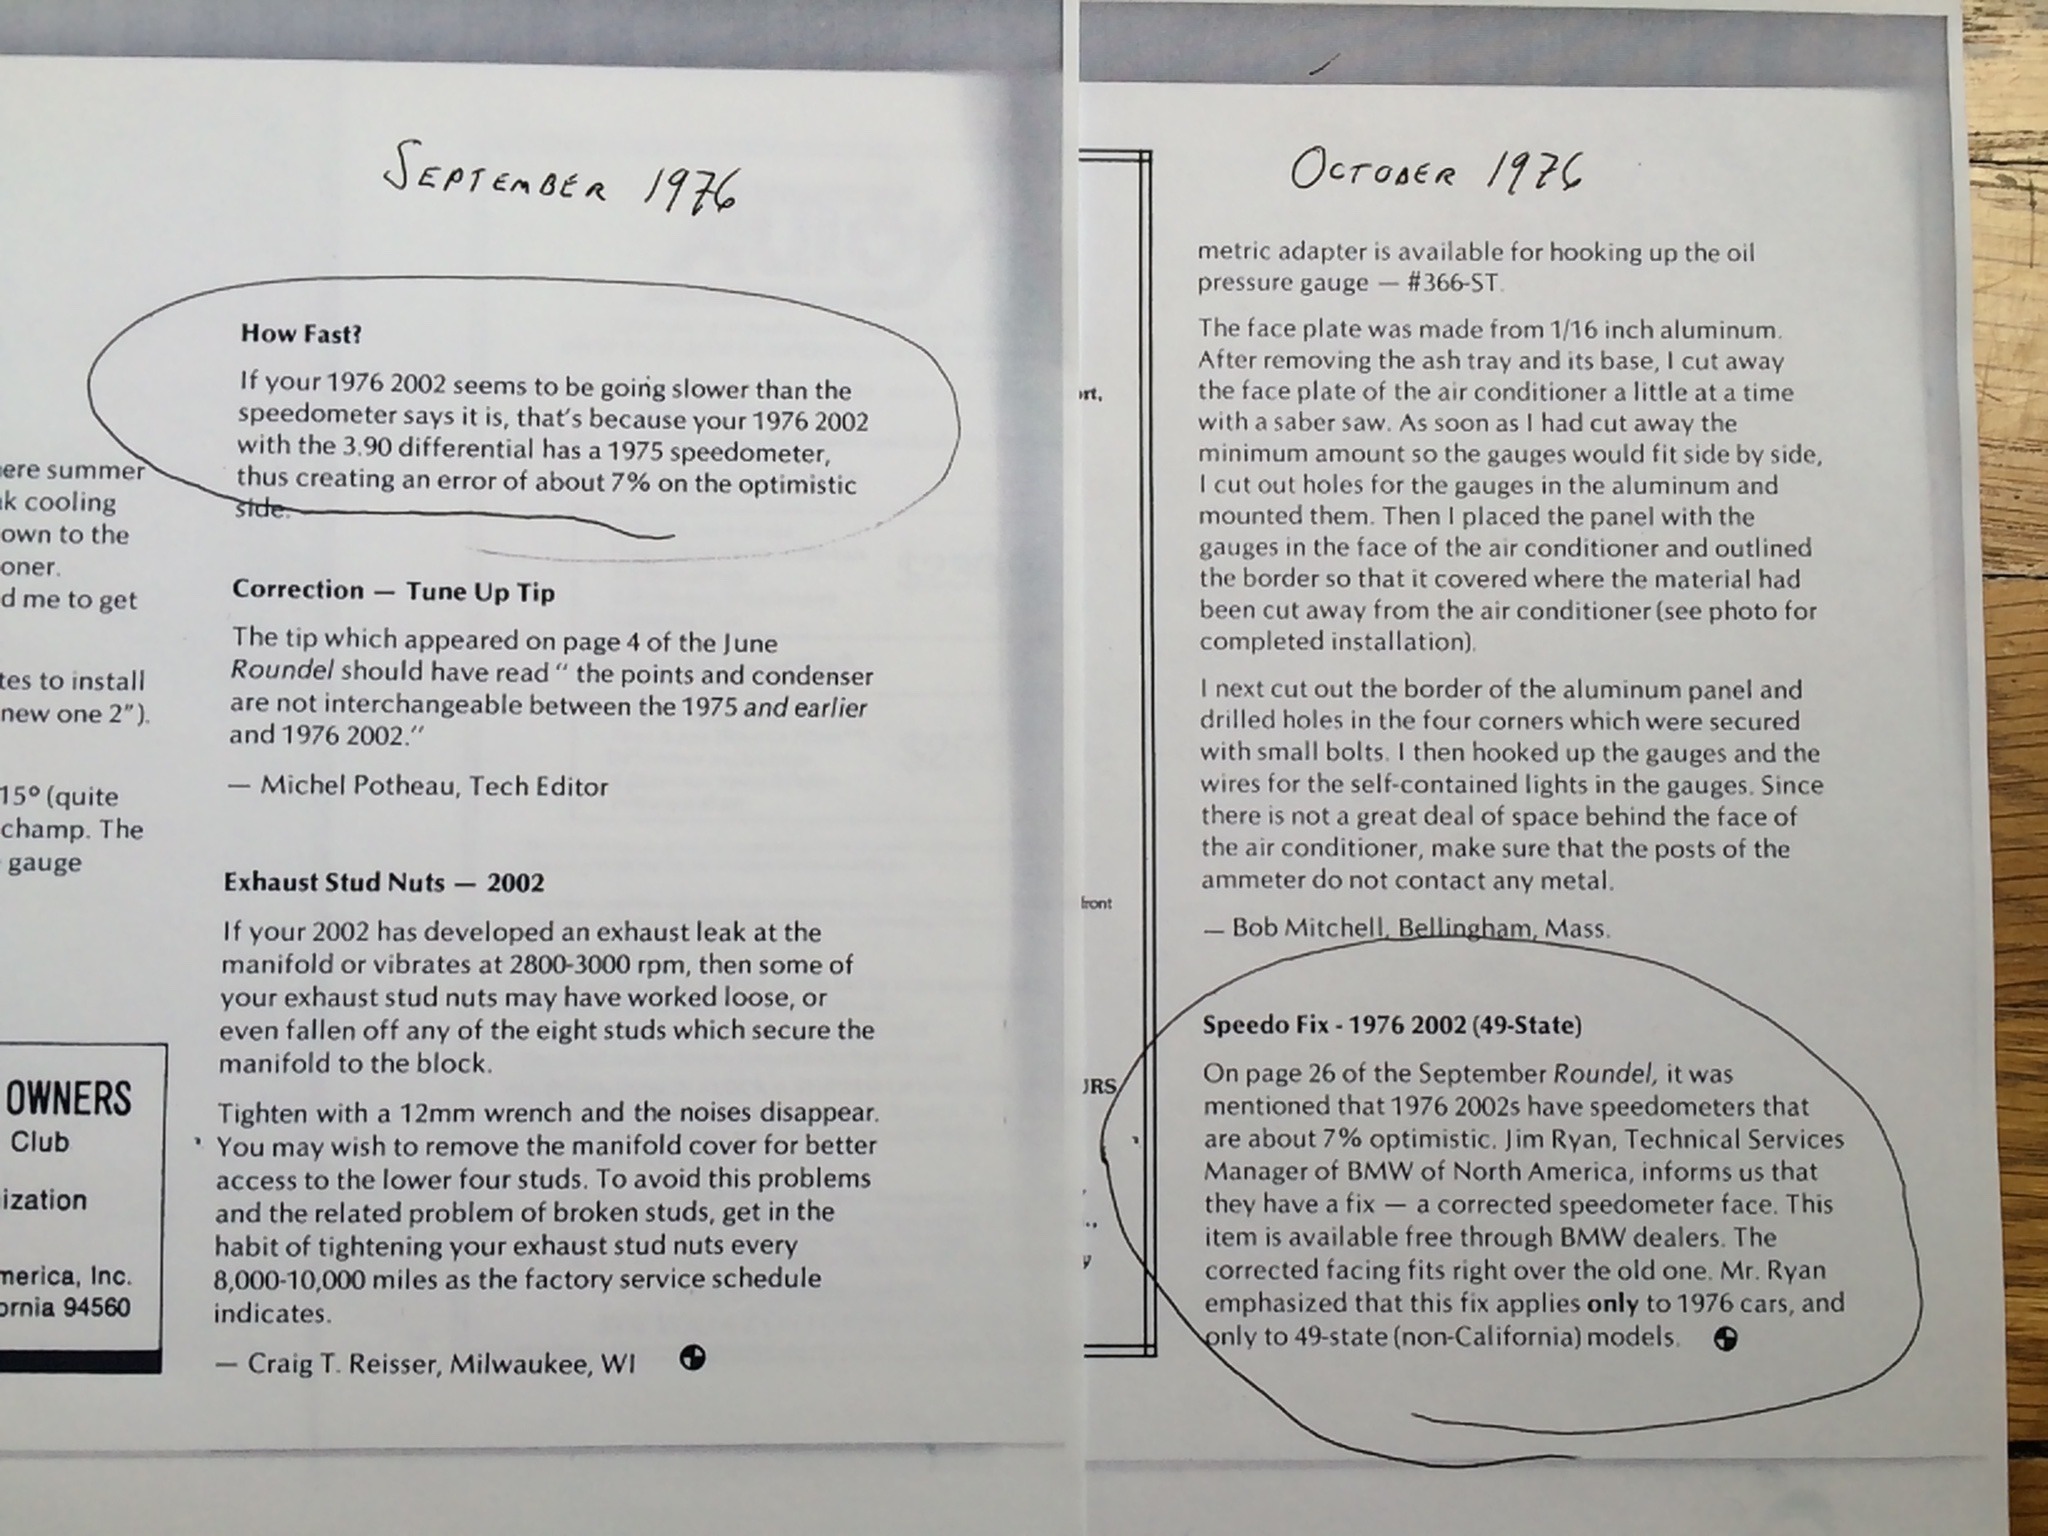 SEPTEMBER 1976
ere summer
k cooling
own to the
oner.
d me to get
tes to install
new one 2").
15º (quite
champ. The
gauge
OWNERS
Club
ization
merica, Inc.
ornia 94560
How Fast?
If your 1976 2002 seems to be going slower than the
speedometer says it is, that's because your 1976 2002
with the 3.90 differential has a 1975 speedometer,
thus creating an error of about 7% on the optimistic
side.
Correction — Tune Up Tip
The tip which appeared on page 4 of the June
Roundel should have read " the points and condenser
are not interchangeable between the 1975 and earlier
and 1976 2002."
— Michel Potheau, Tech Editor
Exhaust Stud Nuts — 2002
If your 2002 has developed an exhaust leak at the
manifold or vibrates at 2800-3000 rpm, then some of
your exhaust stud nuts may have worked loose, or
even fallen off any of the eight studs which secure the
manifold to the block.
Tighten with a 12mm wrench and the noises disappear.
You may wish to remove the manifold cover for better
access to the lower four studs. To avoid this problems
and the related problem of broken studs, get in the
habit of tightening your exhaust stud nuts every
8,000-10,000 miles as the factory service schedule
indicates.
— Craig T. Reisser, Milwaukee, WI
OCTOBER 1976
ort,
front
URS
metric adapter is available for hooking up the oil
pressure gauge — #366-ST.
The face plate was made from 1/16 inch aluminum.
After removing the ash tray and its base, I cut away
the face plate of the air conditioner a little at a time
with a saber saw. As soon as I had cut away the
minimum amount so the gauges would fit side by side,
I cut out holes for the gauges in the aluminum and
mounted them. Then I placed the panel with the
gauges in the face of the air conditioner and outlined
the border so that it covered where the material had
been cut away from the air conditioner (see photo for
completed installation).
I next cut out the border of the aluminum panel and
drilled holes in the four corners which were secured
with small bolts. I then hooked up the gauges and the
wires for the self-contained lights in the gauges. Since
there is not a great deal of space behind the face of
the air conditioner, make sure that the posts of the
ammeter do not contact any metal.
— Bob Mitchell, Bellingham, Mass.
Speedo Fix - 1976 2002 (49-State)
On page 26 of the September Roundel, it was
mentioned that 1976 2002s have speedometers that
are about 7% optimistic. Jim Ryan, Technical Services
Manager of BMW of North America, informs us that
they have a fix — a corrected speedometer face. This
item is available free through BMW dealers. The
corrected facing fits right over the old one. Mr. Ryan
emphasized that this fix applies only to 1976 cars, and
only to 49-state (non-California) models.